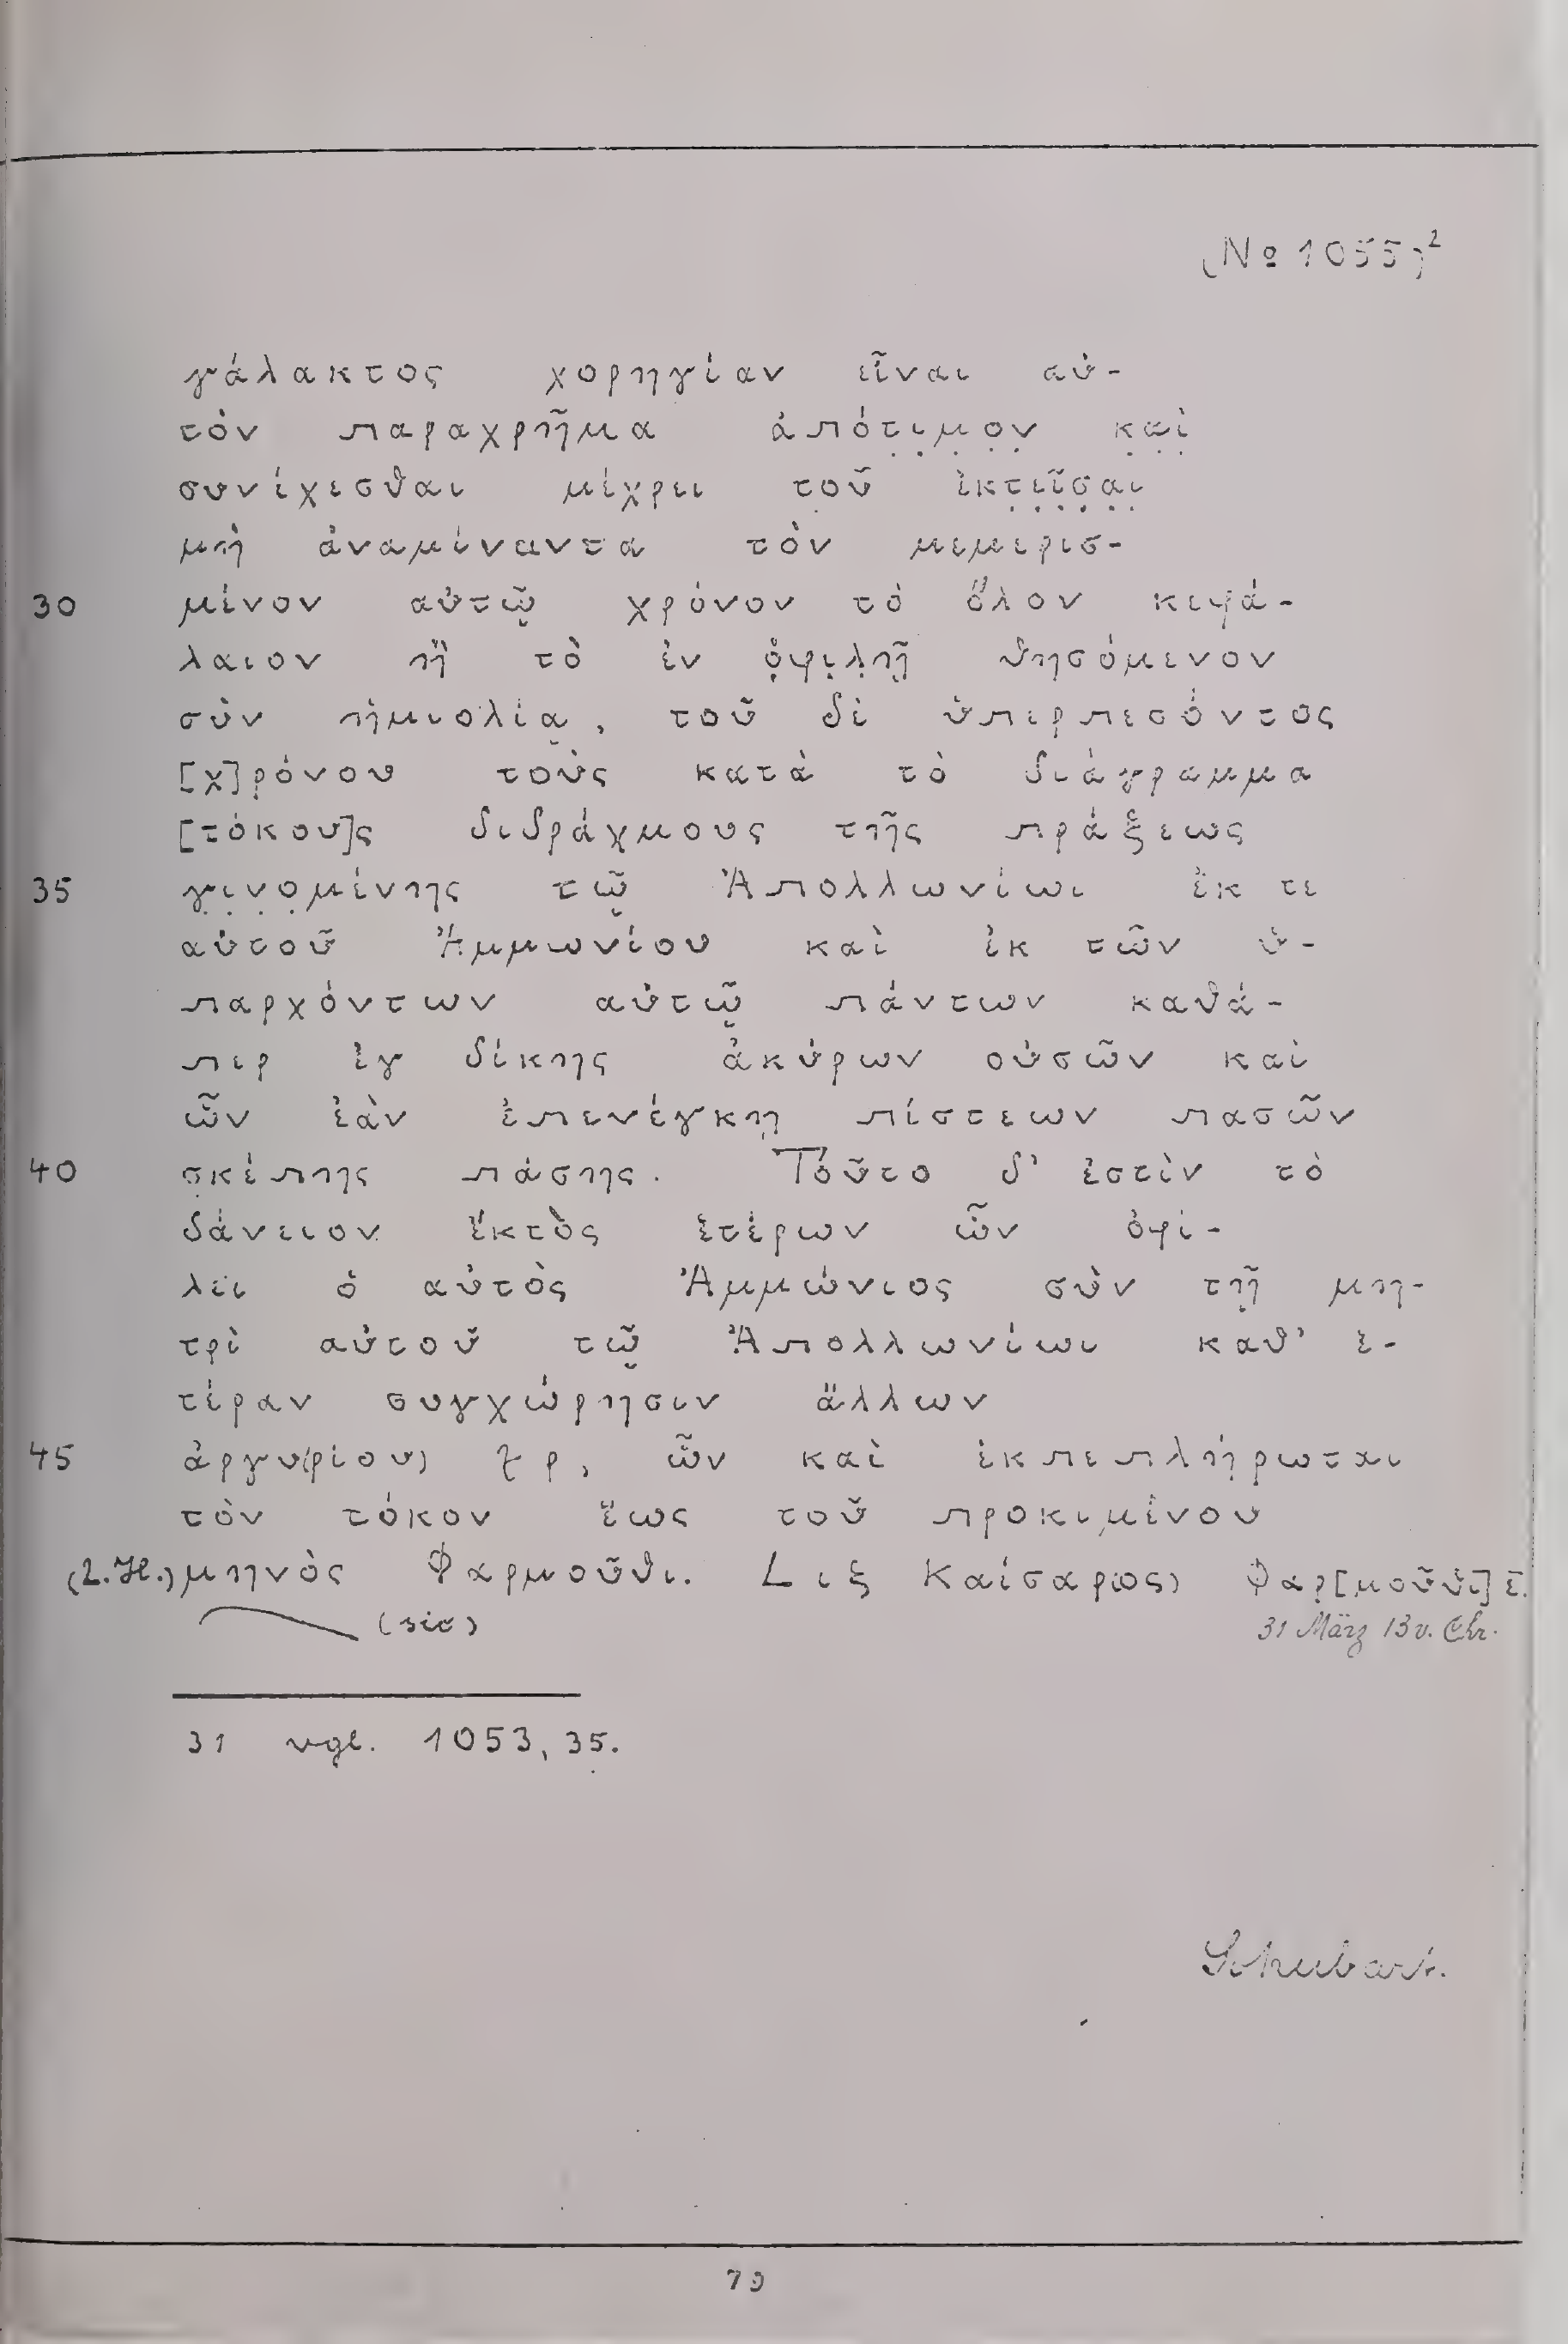 (№ 1055)²
γάλακτος χορηγίαν εἶναι αὐ-
τὸν παραχρῆμα ἀπότ̣ι̣μ̣ο̣ν̣ κ̣α̣ὶ̣
συνέχεσθαι μέχρει τοῦ ἐκτ̣ε̣ῖ̣σ̣α̣ι̣
μὴ ἀναμείναντα τὸν μεμερισ-
30 μένον αὐτῷ χρόνον τὸ ὅλον κεφά-
λαιον ἢ τὸ ἐν ὀ̣φ̣ι̣λ̣ῇ θησόμενον
σὺν ἡμιολίᾳ, τοῦ δὲ ὑπερπεσόντος
[χ]ρόνου τοὺς κατὰ τὸ διάγραμμα
[τόκου]ς διδράχμους τῆς πράξεως
35 γ̣ι̣ν̣ο̣μένης τῷ Ἀπολλωνίωι ἔκ τε
αὐτοῦ Ἀμμωνίου καὶ ἐκ τῶν ὑ-
παρχόντων αὐτῷ πάντων καθά-
περ ἐγ δίκης ἀκύρων οὐσῶν καὶ
ὧν ἐὰν ἐπενέγκῃ πίστεων πασῶν
40 σ̣κέπης πάσης. Τοῦτο δ’ ἐστὶν τὸ
δάνειον ἔκτὸς ἑτέρων ὧν ὀφί-
λει ὁ αὐτὸς Ἀμμώνιος σὺν τῇ μη-
τρὶ αὐτοῦ τῷ Ἀπολλωνίωι καθ’ ἑ-
τέραν συγχώρησιν ἄλλων
45 ἀργυ(ρίου) ⳨ ρ, ὧν καὶ ἐκπεπλήρωται
τὸν τόκον ἕως τοῦ προκιμένου
(2.H.) μηνὸς Φαρμοῦθι. L ιξ Καίσαρ(ος) Φαρ[μοῦθι] ε̄.
(sic) 31 März 13 v. Chr.
31 vgl. 1053, 35.
Schubart.
79